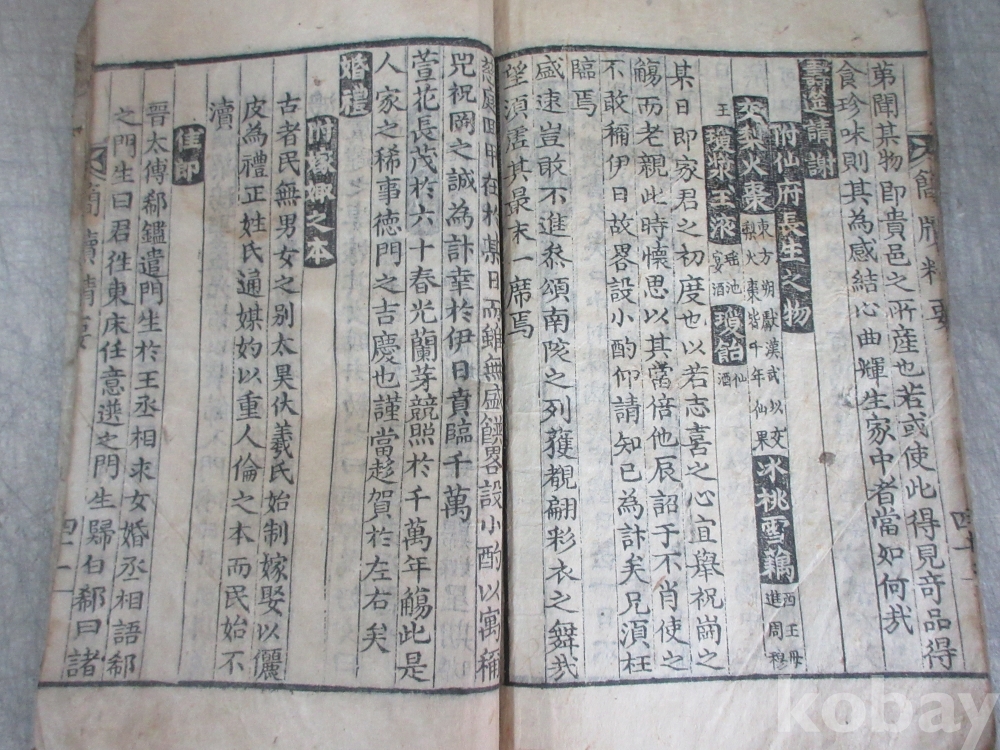 簡牘精要
四十
弟聞某物即貴邑之所産也若或使此得見奇品得
食珍味則其為感結心曲輝生家中者當如何哉
壽筵請謝
附仙府長生之物
交梨火棗 東方朔獻漢武以交梨火棗皆千年仙果 冰桃雪藕 西王母進周穆王
瓊漿玉液 瑶池宴酒 瓊飴 仙酒
某日即家君之初度也以若志喜之心宜舉祝崗之
觴而老親此時懷思以其當倍他辰詔于不肖使之
不敢稱伊日故畧設小酌仰請知己為計矣兄須枉
臨焉
盛速豈敢不進叅頌南陔之列獲覩翩彩衣之舞哉
望須虗其最末一席焉
慈庭回甲在於某日而雖無盛饌畧設小酌以寓稱
兕祝岡之誠為計幸於伊日賁臨千萬
萱花長茂於六十春光蘭芽競照於千萬年觴此是
人家之稀事德門之吉慶也謹當趍賀於左右矣
婚禮
附嫁娶之本
古者民無男女之别太昊伏羲氏始制嫁娶以儷
皮為禮正姓氏通媒妁以重人倫之本而民始不
瀆
佳郎
晉太傳郗鑑遣門生於王丞相求女婚丞相語郗
之門生曰君徃東床任意選之門生歸白郗曰諸
簡牘精要
四十一
kobay